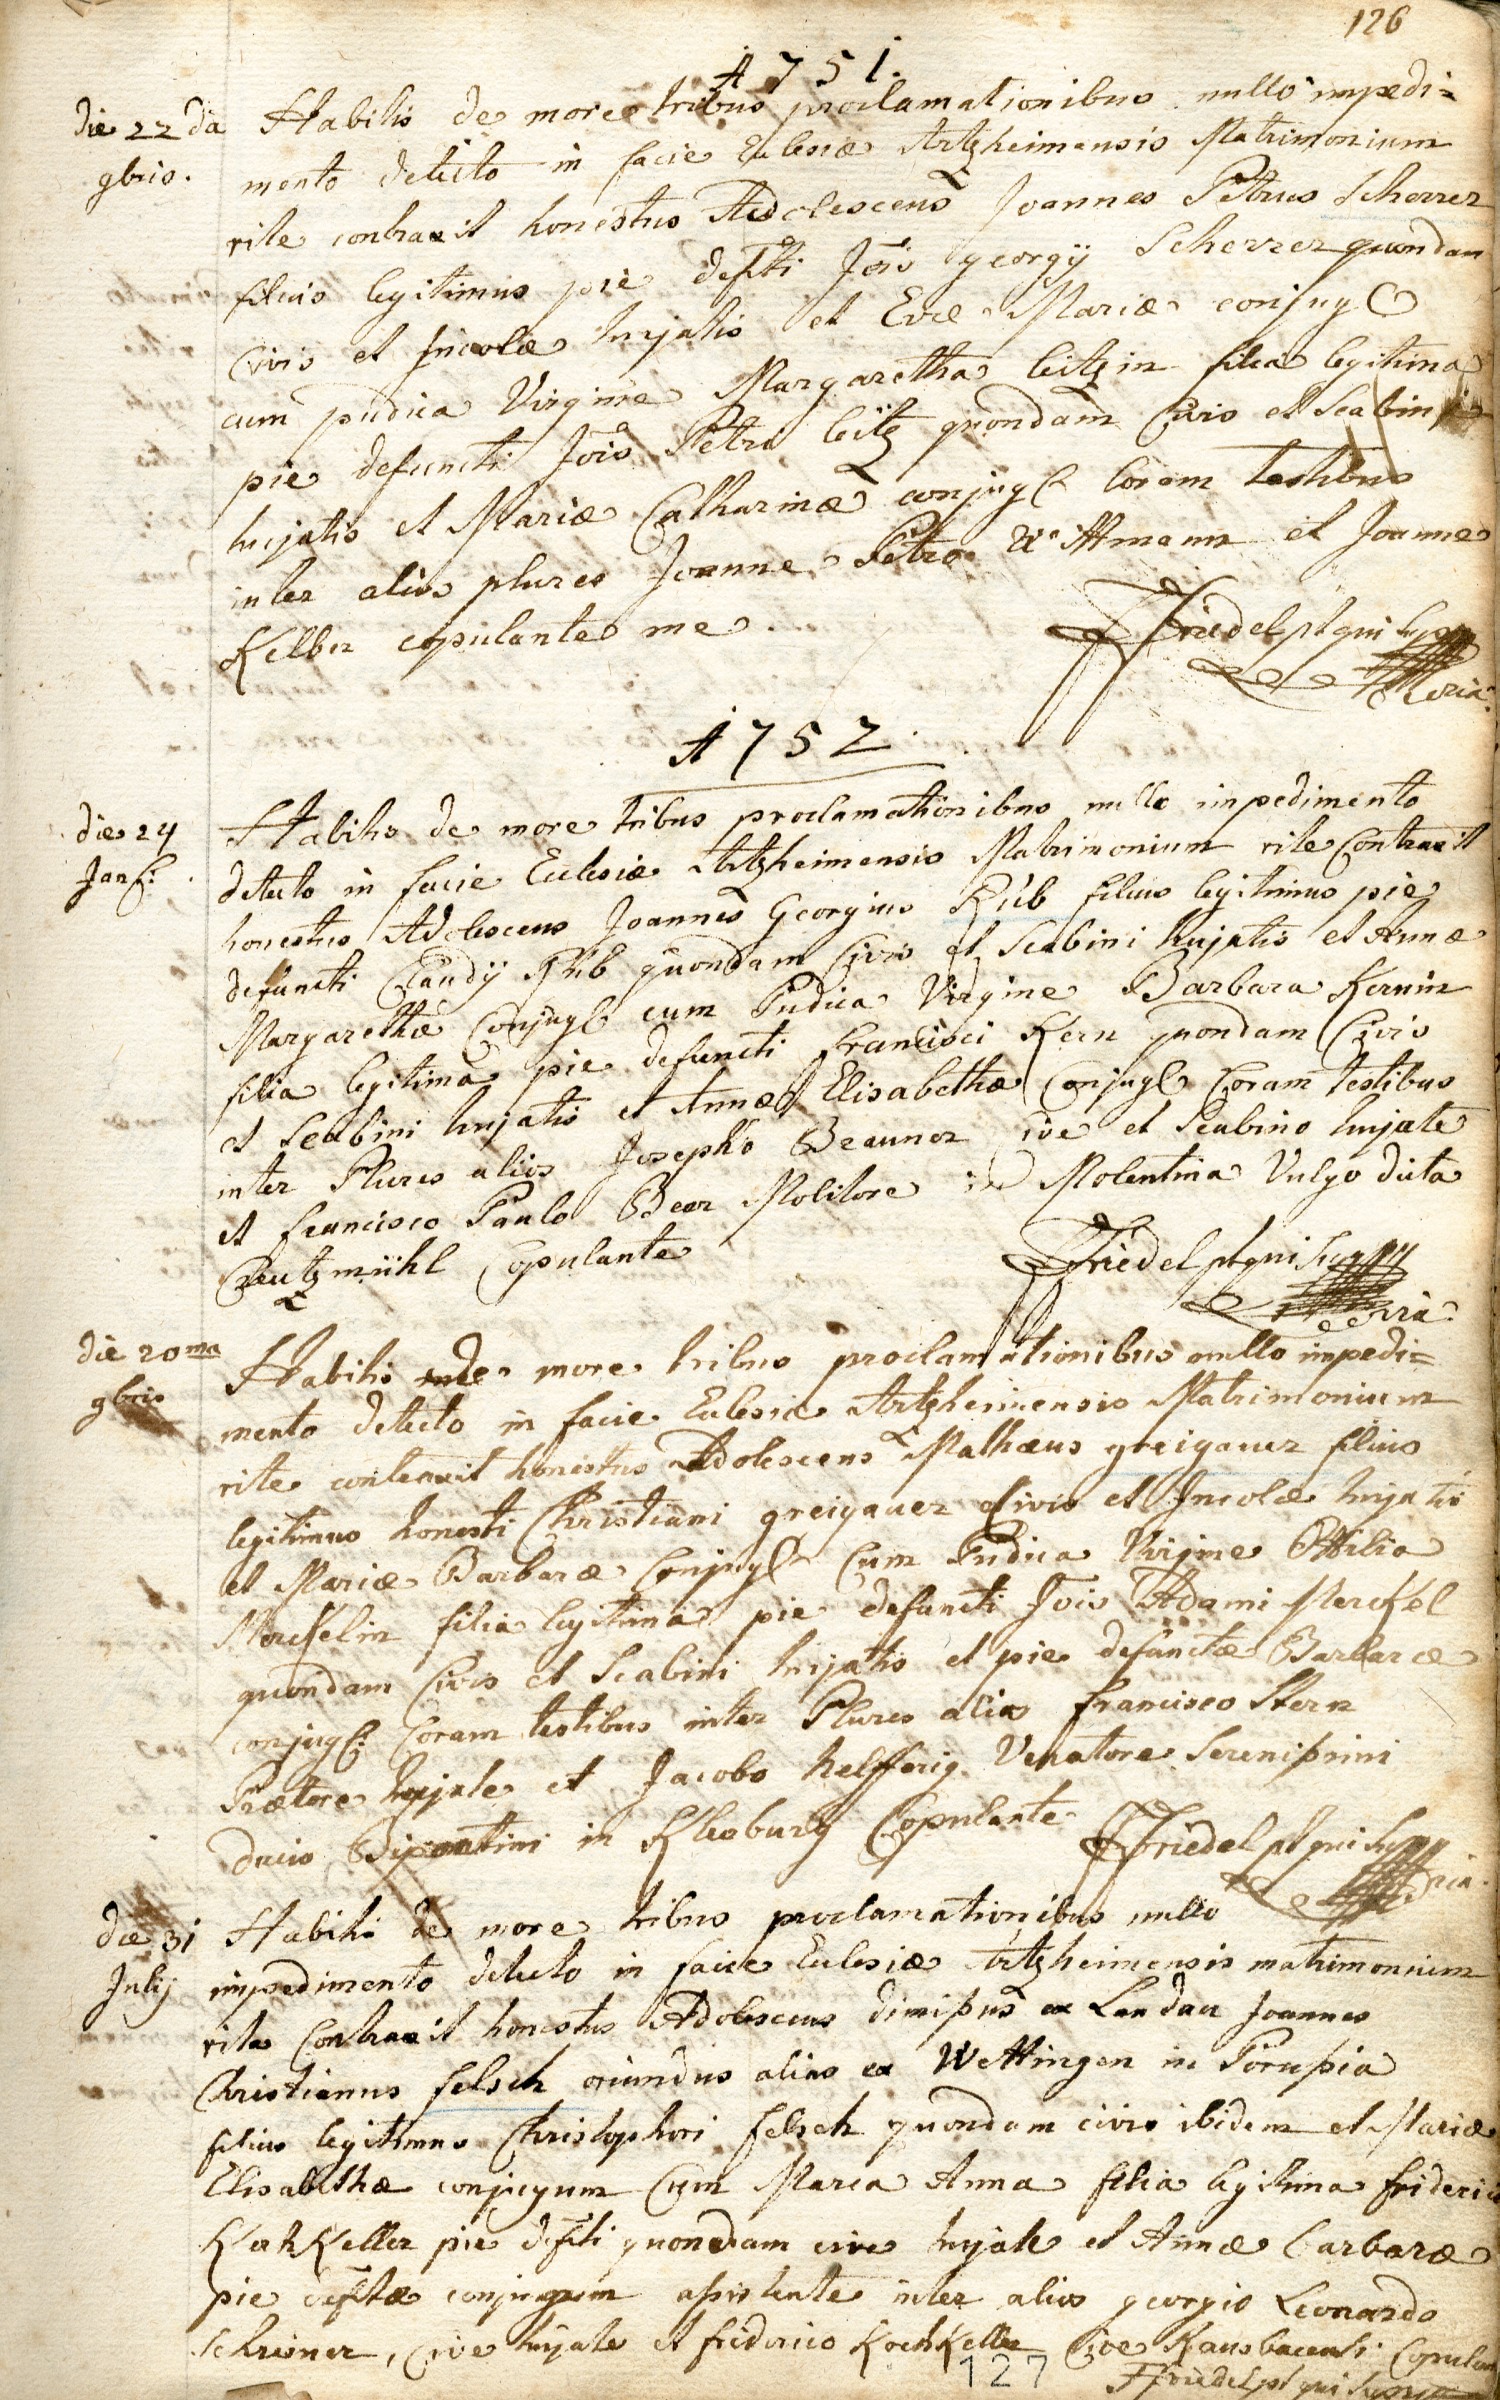 126
A 1751.
die 22da
9bris.
Habitis de more tribus proclamationibus nullo impedi=
mento detecto in facie Eclesiæ Artzheimensis Matrimonium
rite contraxit honestus Adolescens Joannes Petrus Scherrer
filius legitimus pie defcti Jois georgij Scherrer quondam
Civis et Incolæ hujatis et Evæ Mariæ conjug
cum pudica Virgine Margaretha leitzin filia legitima
pie defuncti Jois Petri leitz quondam Civis et Scabini
hujatis et Mariæ Catharinæ conjug Coram testibus
inter alios plures Joanne Petro Wittmann et Joanne
Kelber copulante me
FFriedel pt qui supra
mpria.
A 1752.
die 24
Jan:
Habitis de more tribus proclamationibus nullo impedimento
detecto in facie Eclesiæ Artzheimensis Matrimonium rite Contraxit
honestus Adolescens Joannes Georgius Rüb filius legitimus pie
defuncti Claudij Rüb quondam Civis et Scabini hujatis et Annæ
Margarethæ Conjug cum Pudica Virgine Barbara Kernin
filia legitima pie defuncti francisci Kern quondam Civis
et Scabini hujatis et Annæ Elisabethæ Conjug Coram testibus
inter Plures alios Josepho Beauner cive et Scabino hujate
et francisco Paulo Bear Molitore in Molentina Vulgo dicta
Creutzmühl Copulante
FFriedel pt qui supra
mpria.
die 20ma
9bris
Habitis de more tribus proclamationibus nullo impedi=
mento detecto in facie Eclesiæ Artzheimensis Matrimonium
rite contraxit honestus Adolescens Mathæus greigauer filius
legitimus honesti Christiani greigauer Civis et Incolæ hujatis
et Mariæ Barbaræ Conjug Cum Pudica Virgine Ottilia
Merckelin filia legitima pie defuncti Jois Adami Merckel
quondam Civis et Scabini hujatis et pie defunctæ Barbaræ
conjug: Coram testibus inter Plures alios francisco Stern
Prætore hujate et Jacobo helfferig Venatore Serenissimi
ducis Bipontini in Kleeburg Copulante
FFriedel pt qui supra
mpria.
die 31
Julij
Habitis de more tribus proclamationibus nullo
impedimento detecto in facie Eclesiæ Artzheimensis matrimonium
rite Contraxit honestus Adolescens dimissus ex Landau Joannes
Christianus felsch oriundus alias ex Wettingen in Porussia
filius legitimus Christophori felsch quondam civis ibidem et Mariæ
Elisabethæ conjugum Cum Maria Anna filia legitima friderici
KochKeller pie defcti quondam cive hujate et Annæ barbaræ
pie defctæ conjugum assistente inter alios georgio Leonardo
Schreiner, Cive hujate et friderico KochKeller Cive Ransbacensi Copulante
FFriedel pt qui supra
127